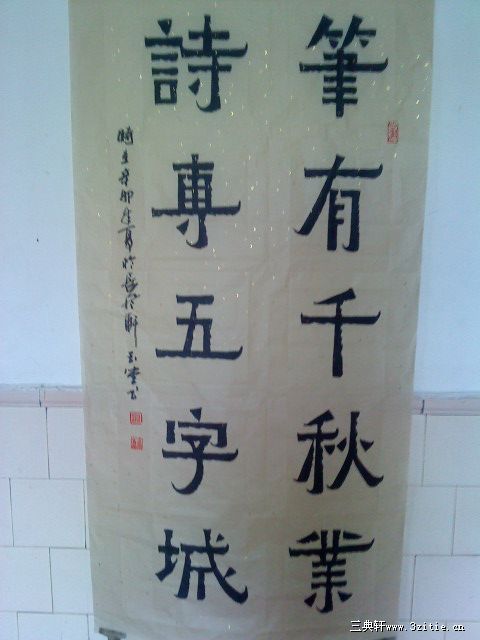 筆有千秋業
詩專五字城
時在辛卯年夏於
三典轩www.3zitie.cn